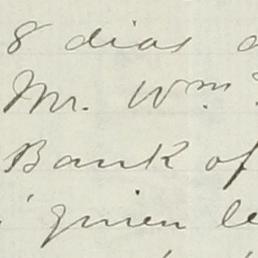 8 dias
Mr. Wm
Bank of
quien le